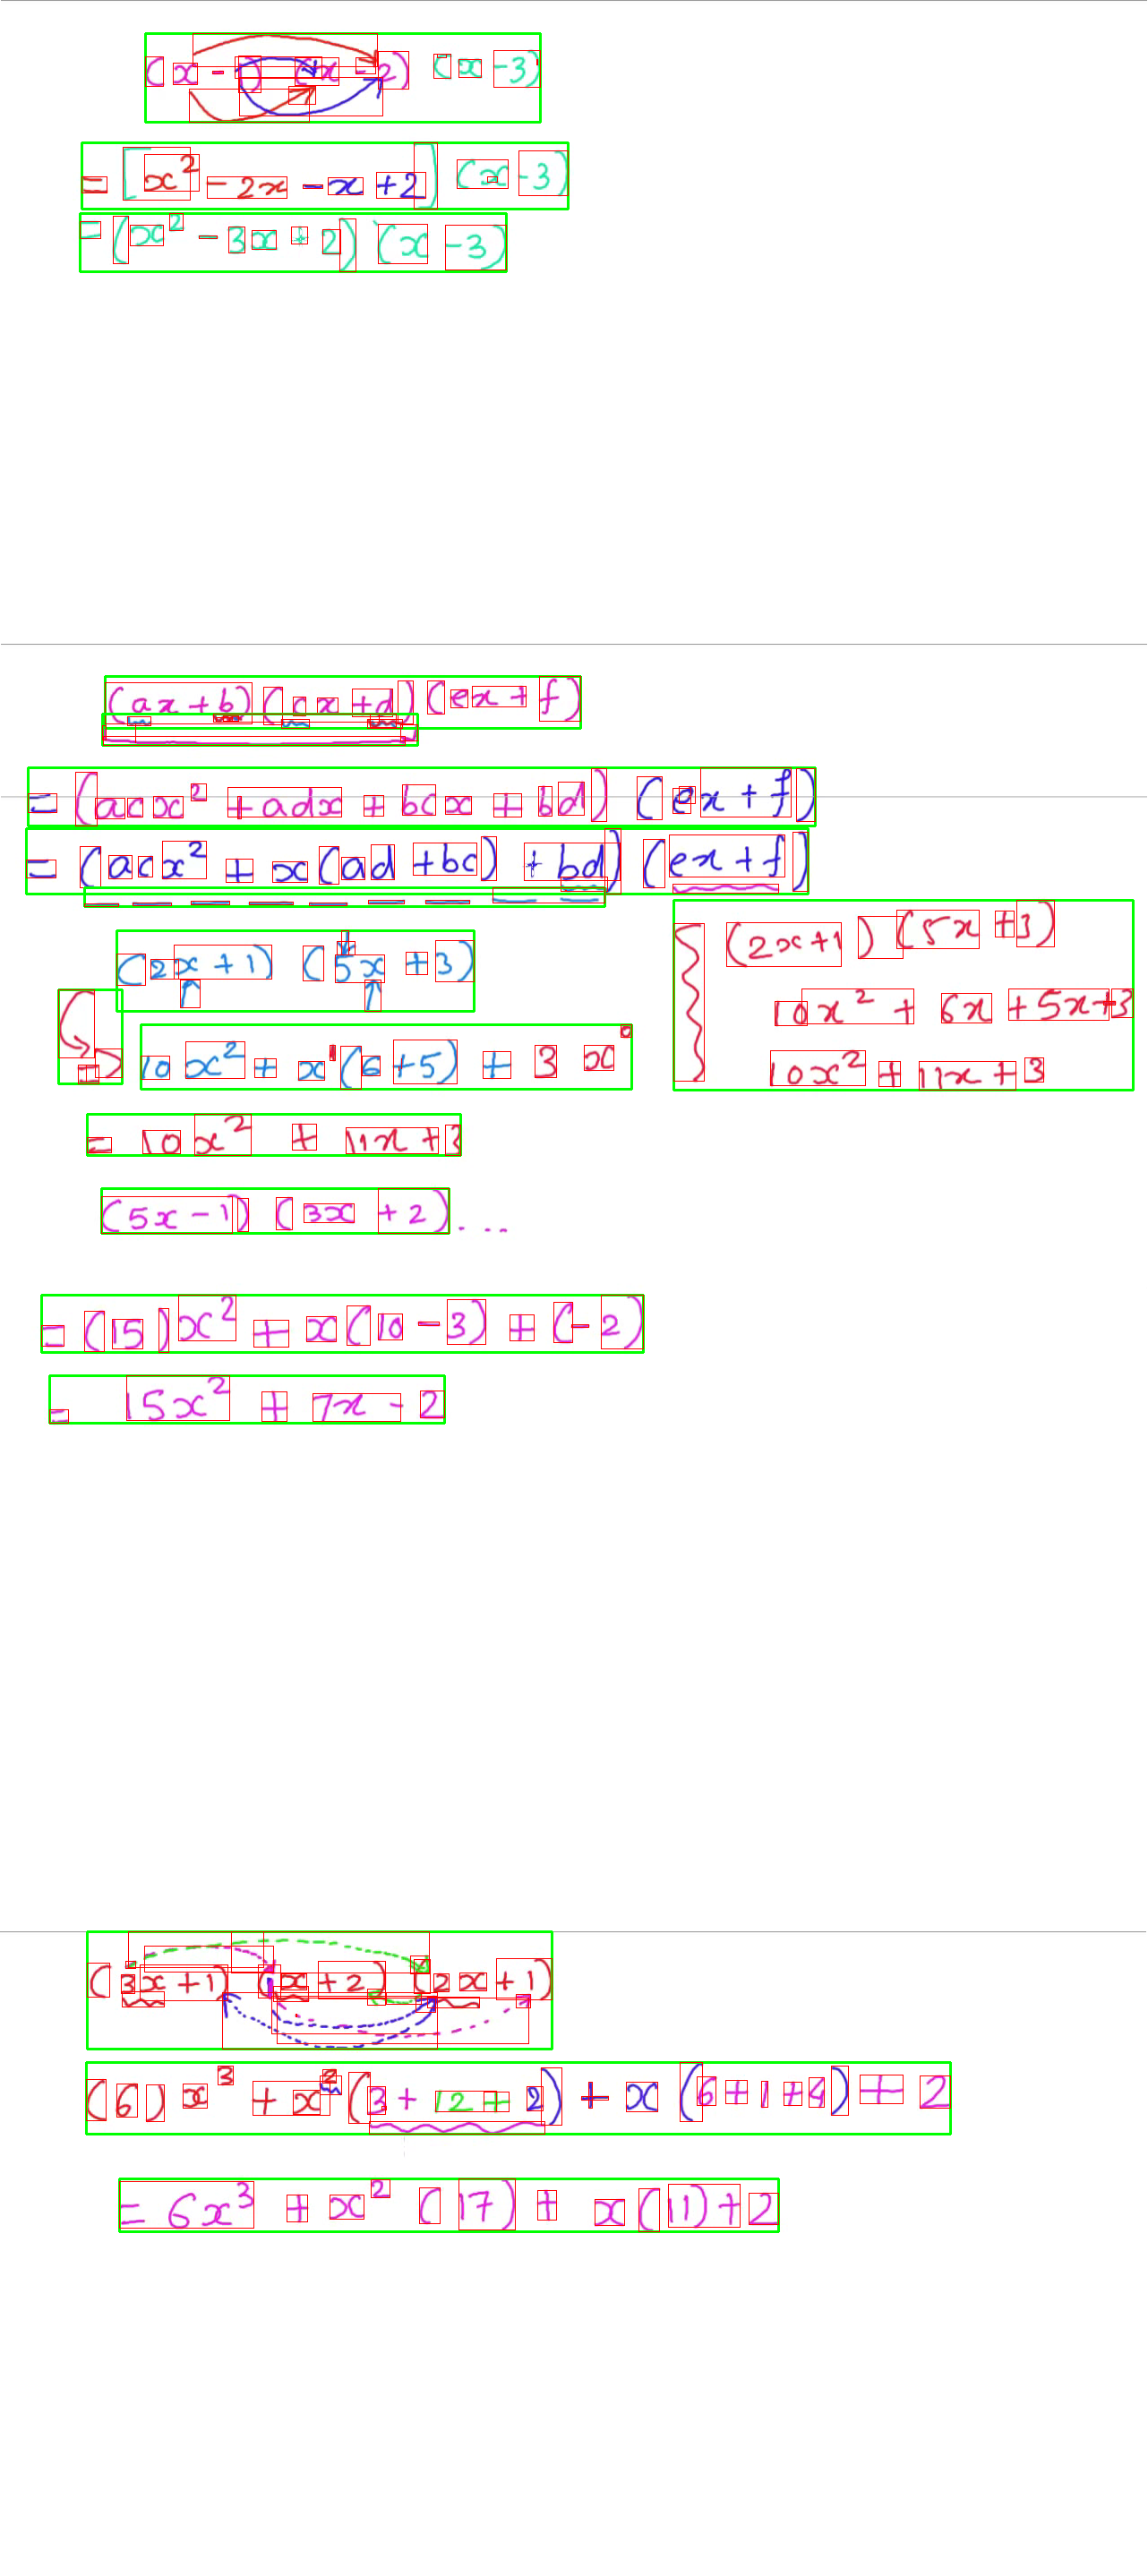 (x - 1) (x - 2) (x - 3)
= [x² - 2x - x + 2] (x - 3)
= (x² - 3x + 2) (x - 3)
(ax + b) (cx + d) (ex + f)
= (acx² + adx + bcx + bd) (ex + f)
= (acx² + x(ad + bc) + bd) (ex + f)
(2x + 1) (5x + 3)
= 10x² + x¹(6 + 5) + 3 x⁰
= 10x² + 11x + 3
(2x + 1) (5x + 3)
10x² + 6x + 5x + 3
10x² + 11x + 3
(5x - 1) (3x + 2) ...
= (15)x² + x(10 - 3) + (-2)
= 15x² + 7x - 2
(3x + 1) (x + 2) (2x + 1)
(6) x³ + x² (3 + 12 + 2) + x (6 + 1 + 4) + 2
= 6x³ + x² (17) + x(11) + 2